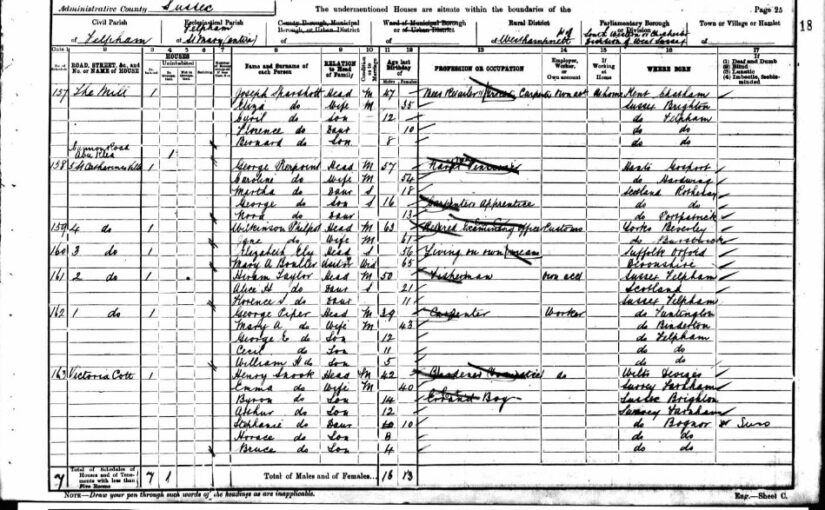 Administrative County Sussex
The undermentioned Houses are situate within the boundaries of the
Page 25
18
Civil Parish of Felpham
Ecclesiastical Parish of Felpham St Mary (entire)
County Borough, Municipal Borough, or Urban District of
Ward of Municipal Borough or of Urban District of
Rural District of Westhampnett
Parliamentary Borough or Division of South Western or Chichester Division of West Sussex
Town or Village or Hamlet of
ROAD, STREET, &c., and No. or NAME of HOUSE
HOUSES
Name and Surname of each Person
RELATION to Head of Family
Age last Birthday of
PROFESSION OR OCCUPATION
Employer, Worker, or Own account
If Working at Home
WHERE BORN
(1) Deaf and Dumb (2) Blind (3) Lunatic (4) Imbecile, feeble-minded
157 The Mill 1 Joseph Sparshott Head M 47 Beer Retailer Carpenter Own acct At home Kent Chatham
Eliza do Wife M 35 Sussex Brighton
Cyril do Son 12 do Felpham
Florence do Daur 10 do do
Bernard do Son 8 do do
1
158 5 St Catherines Villa 1 George Pierpoint Head M 57 Hants Gosport
Caroline do Wife M 54 do
Martha do Daur S 18 Scotland Rothesay
George do Son S 16 Carpenters Apprentice do
Nora do Daur 13 do Portpatrick
159 4 do 1 Wilkinson Philpot Head M 63 Retired Examining Officer Customs Yorks Beverley
Jane do Wife M 61 do
160 3 do 1 Elizabeth Ely Head S 56 Living on own means Suffolk Orford
Mary A Visitor Wid 65 Devonshire
161 2 do 1 Hiram Taylor Head M 50 Fisherman Own acct Sussex Felpham
Alice H do Daur S 21 Scotland
Florence S do Daur 11 Sussex Felpham
162 1 do 1 George Piper Head M 39 Carpenter Worker do Funtington
Mary A do Wife M 43 do Binderton
George E do Son 12 do Felpham
Cecil do Son 11 do do
William H do Son 5 do do
163 Victoria Cott 1 Henry Snook Head M 42 Gardener Domestic do Wilts
Emma do Wife M 40 Surrey Farnham
Byron do Son 14 Errand Boy Sussex Brighton
Arthur do Son 12 Surrey Farnham
Stephanie do Daur 10 do Bognor
Horace do Son 8 do do
Bruce do Son 4 do do
7 Total of Schedules of Houses and of Tenements with less than Five Rooms 7 1 Total of Males and of Females... 16 13
NOTE—Draw your pen through such words of the headings as are inapplicable.
Eng.—Sheet C.